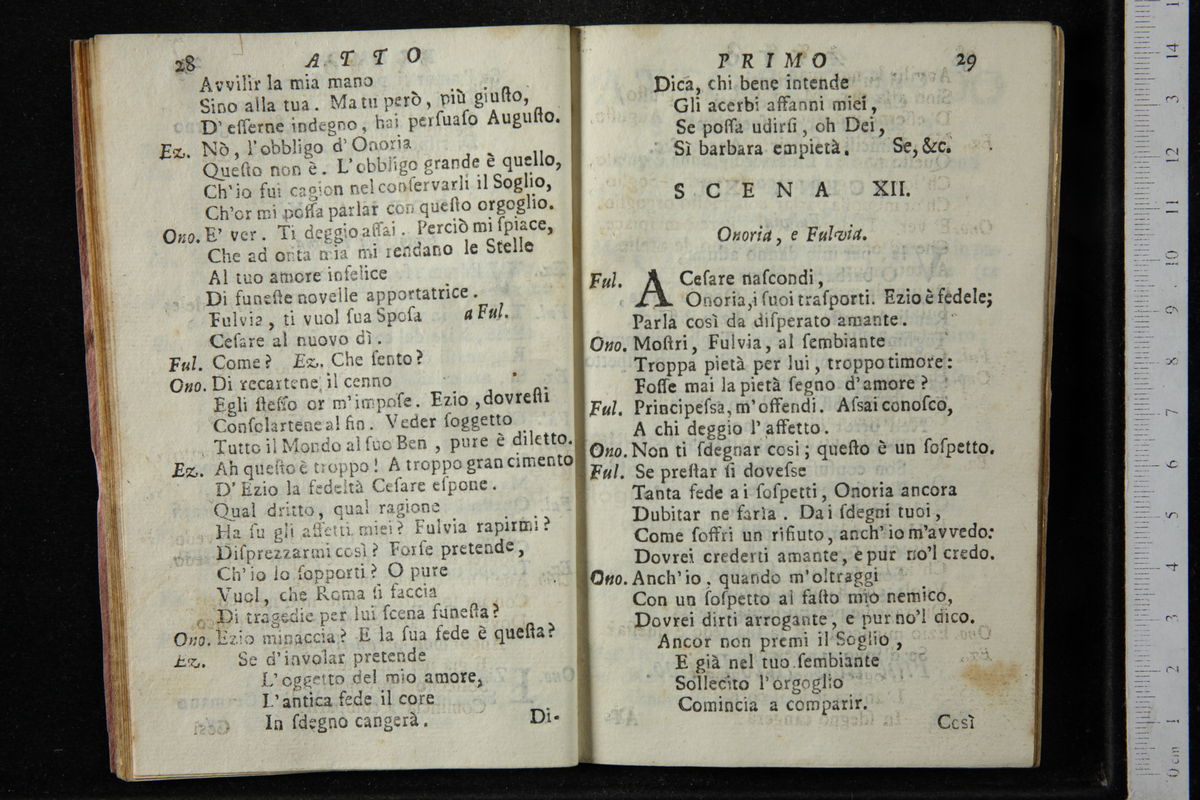 28 ATTO
Avvilir la mia mano
Sino alla tua. Ma tu però, più giuſto,
D'eſſerne indegno, hai perſuaſo Auguſto.
Ez. Nò, l'obbligo d'Onoria
Queſto non è. L'obbligo grande è quello,
Ch'io fui cagion nel conſervarli il Soglio,
Ch'or mi poſſa parlar con queſto orgoglio.
Ono. E' ver. Ti deggio aſſai. Perciò mi ſpiace,
Che ad onta mia mi rendano le Stelle
Al tuo amore infelice
Di funeſte novelle apportatrice.
Fulvia, ti vuol ſua Spoſa a Ful.
Ceſare al nuovo dì.
Ful. Come? Ez. Che ſento?
Ono. Di recartene il cenno
Egli ſteſſo or m'impoſe. Ezio, dovreſti
Conſolartene al fin. Veder ſoggetto
Tutto il Mondo al ſuo Ben, pure è diletto.
Ez. Ah queſto è troppo! A troppo gran cimento
D'Ezio la fedeltà Ceſare eſpone.
Qual dritto, qual ragione
Ha ſu gli affetti miei? Fulvia rapirmi?
Diſprezzarmi così? Forſe pretende,
Ch'io lo ſopporti? O pure
Vuol, che Roma ſi faccia
Di tragedie per lui ſcena funeſta?
Ono. Ezio minaccia? E la ſua fede è queſta?
Ez. Se d'involar pretende
L'oggetto del mio amore,
L'antica fede il core
In ſdegno cangerà.
Di-
PRIMO 29
Dica, chi bene intende
Gli acerbi affanni miei,
Se poſſa udirſi, oh Dei,
Sì barbara empietà. Se, &c.
SCENA XII.
Onoria, e Fulvia.
Ful. A Ceſare naſcondi,
Onoria, i ſuoi traſporti. Ezio è fedele;
Parla così da diſperato amante.
Ono. Moſtri, Fulvia, al ſembiante
Troppa pietà per lui, troppo timore:
Foſſe mai la pietà ſegno d'amore?
Ful. Principeſsa, m'offendi. Aſsai conoſco,
A chi deggio l'affetto.
Ono. Non ti ſdegnar cosi; queſto è un ſoſpetto.
Ful. Se preſtar ſi doveſse
Tanta fede ai ſoſpetti, Onoria ancora
Dubitar ne farìa. Dai ſdegni tuoi,
Come ſoffri un rifiuto, anch'io m'avvedo:
Dovrei crederti amante, e pur no'l credo.
Ono. Anch'io, quando m'oltraggi
Con un ſoſpetto al faſto mio nemico,
Dovrei dirti arrogante, e pur no'l dico.
Ancor non premi il Soglio,
E già nel tuo ſembiante
Sollecito l'orgoglio
Comincia a comparir.
Cosi